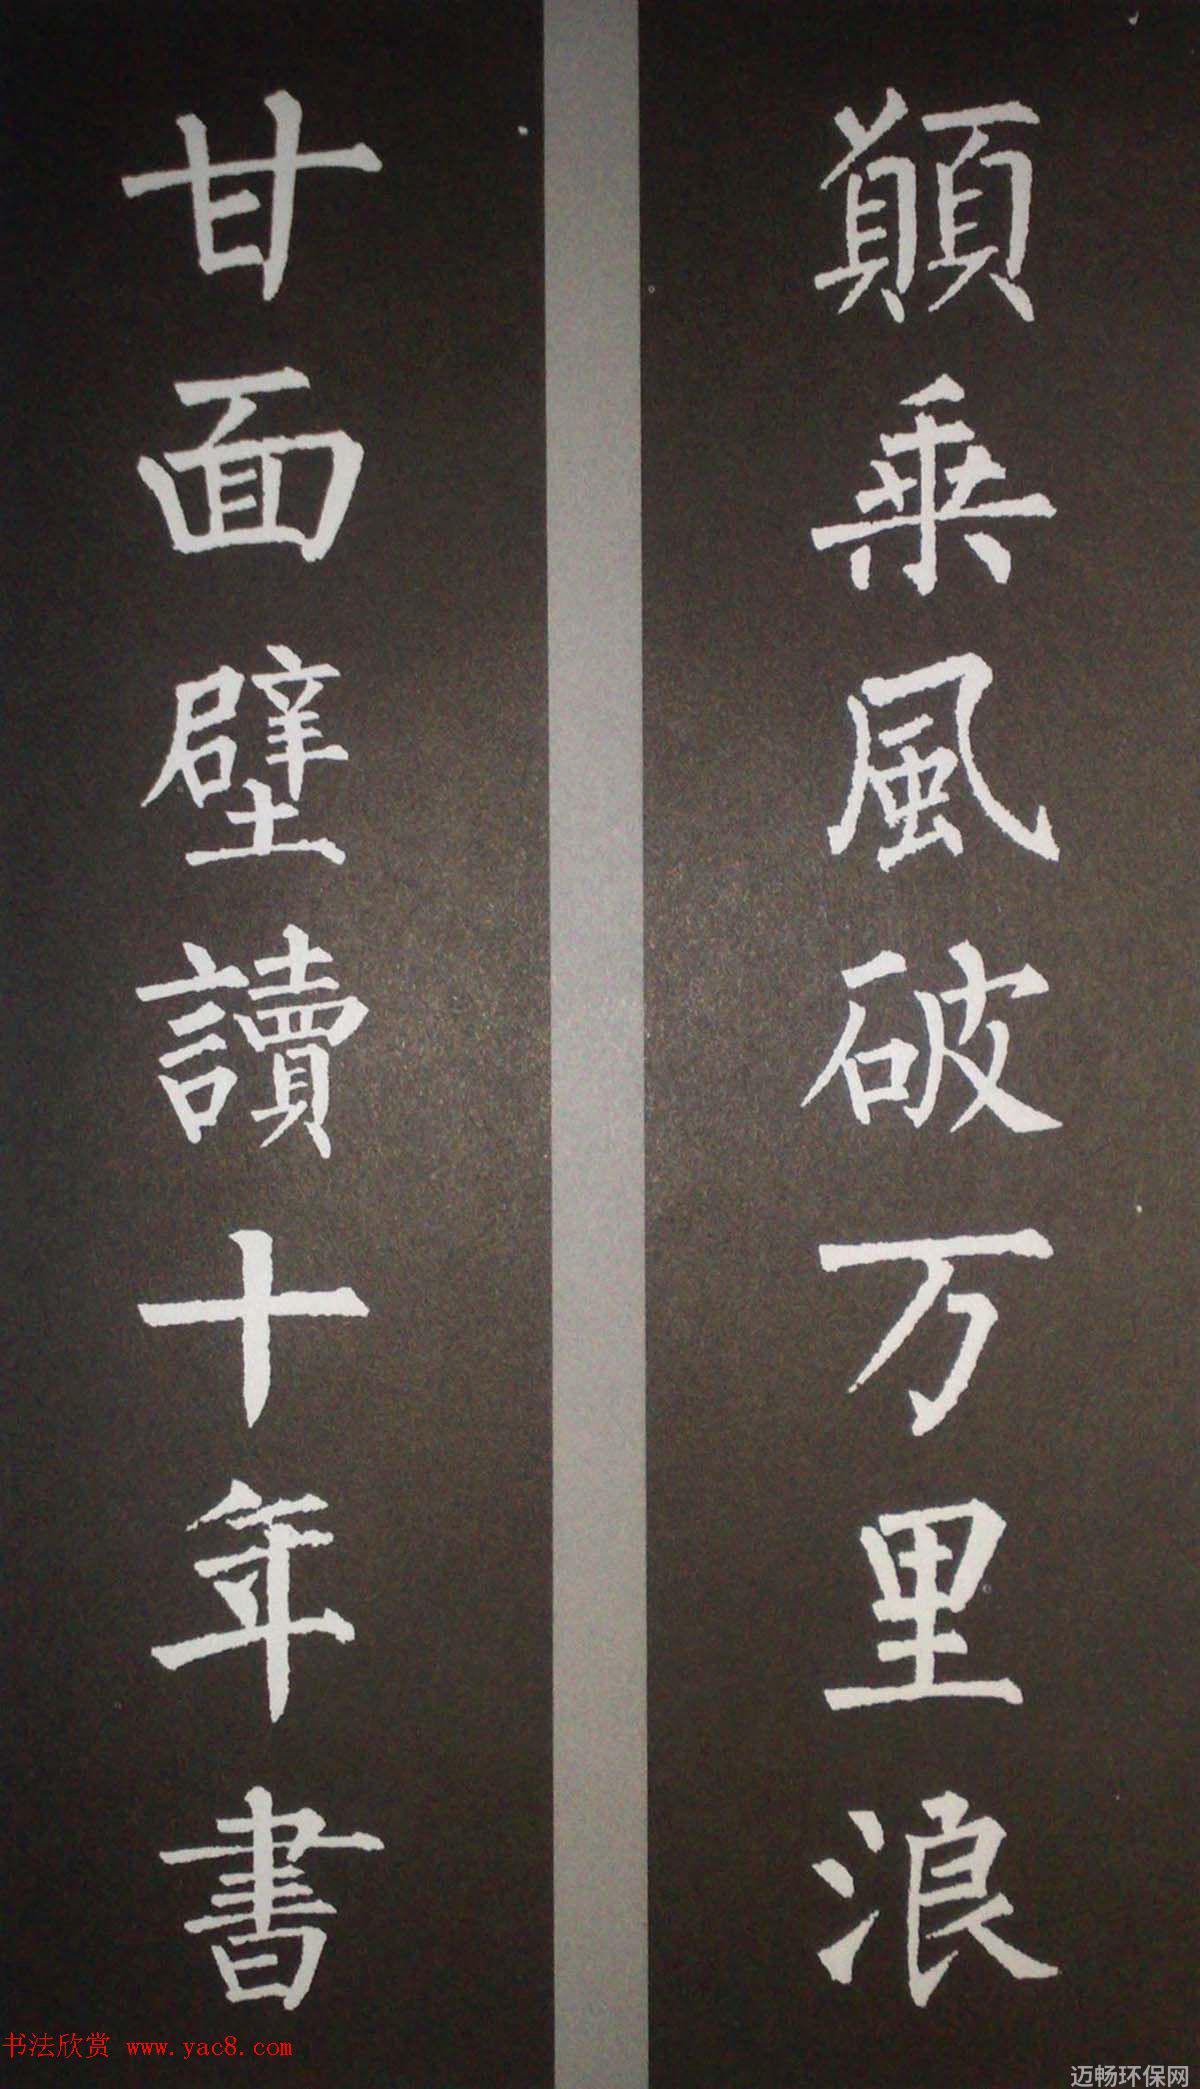 願乘風破万里浪
甘面壁讀十年書
书法欣赏 www.yac8.com
迈畅环保网